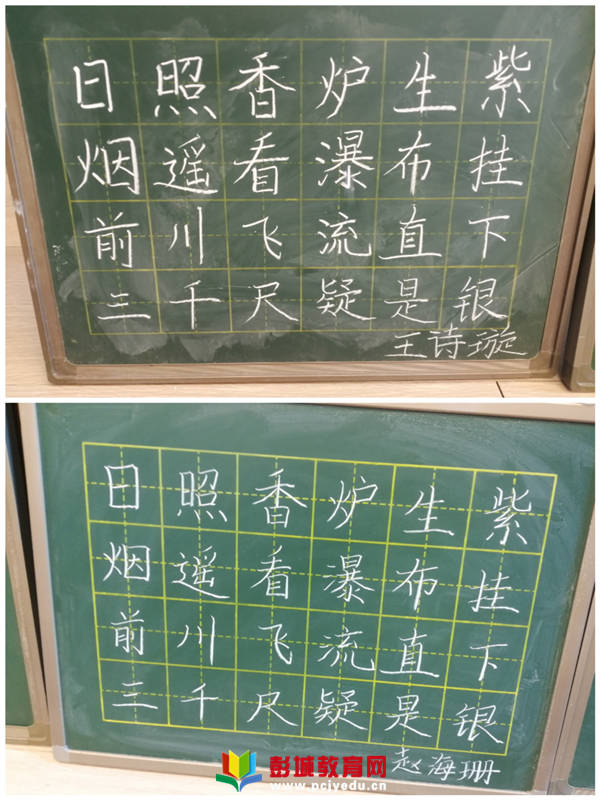 日照香炉生紫
烟遥看瀑布挂
前川飞流直下
三千尺疑是银
王诗璇
日照香炉生紫
烟遥看瀑布挂
前川飞流直下
三千尺疑是银
赵海珊
彭城教育网
www.pcjyedu.cn